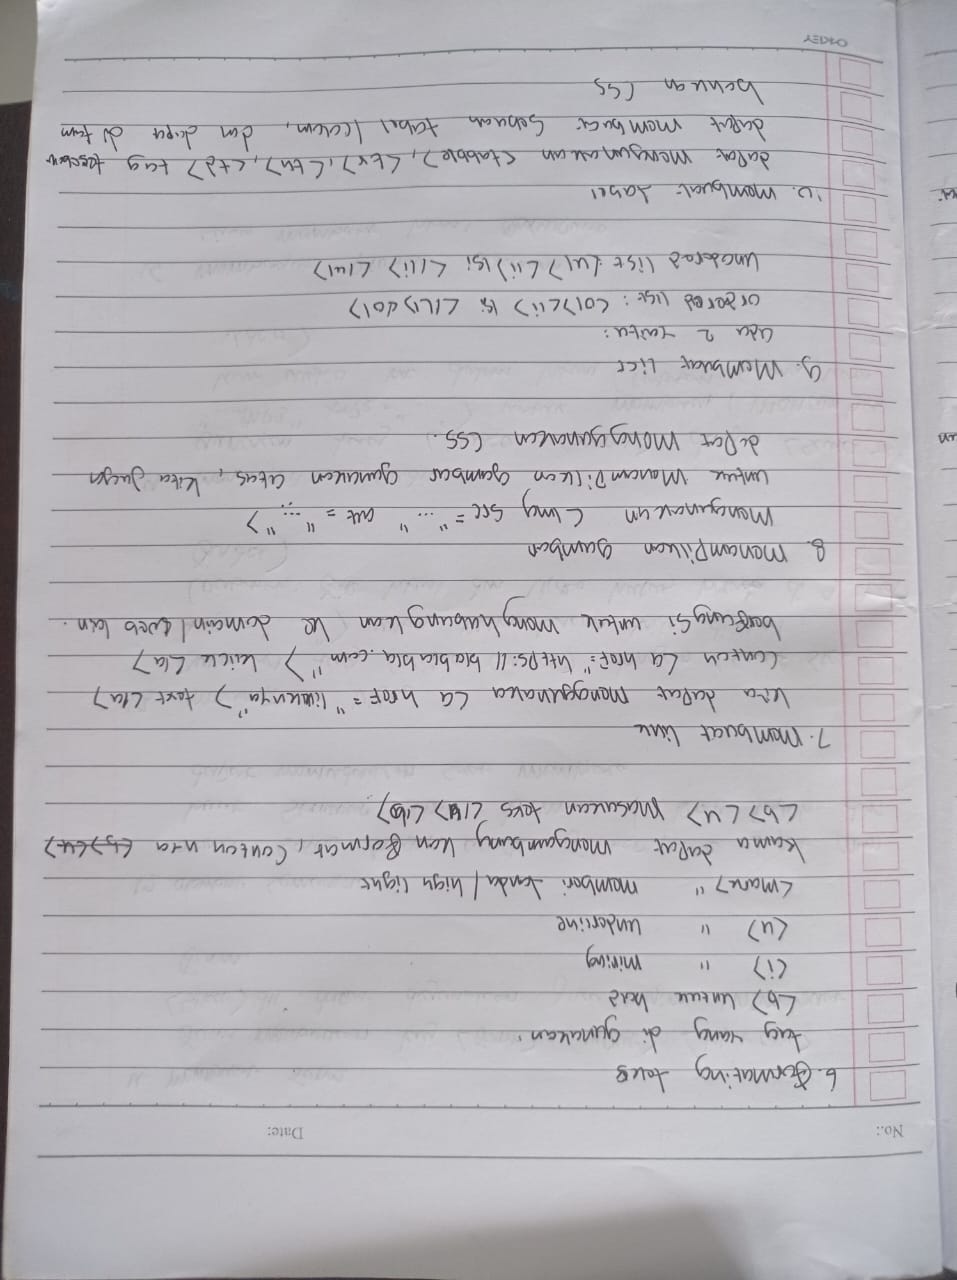 No.: Date:
6. Formating teks
tag yang di gunakan.
<b> untuk bold
<i> " miring
<u> " underline
<mark> " memberi tanda / high light
kamu dapat menggambung kan format, Contoh nya
<b> <u> Masukan teks </u> </b>
7. Membuat link
kita dapat menggunakan <a href="linknya"> text </a>
Contoh <a href="https://blablabla.com"> klick </a>
berfungsi untuk menghubungkan ke domain / web lain.
8. Menampilkan gambar
Menggunakan <img src="..." alt="...">
untuk Menampilkan gambar gunakan atas, kita juga
dapat menggunakan CSS.
9. Membuat list
ada 2 yaitu:
ordered list: <ol> <li> isi </li> </ol>
unodered list <ul> <li> isi </li> </ul>
10. membuat tabel
dapat menggunakan <table>, <tr>, <th>, <td> tag
dapat membuat sebuah tabel / kolom, dan dapat di
CSS
OKEY